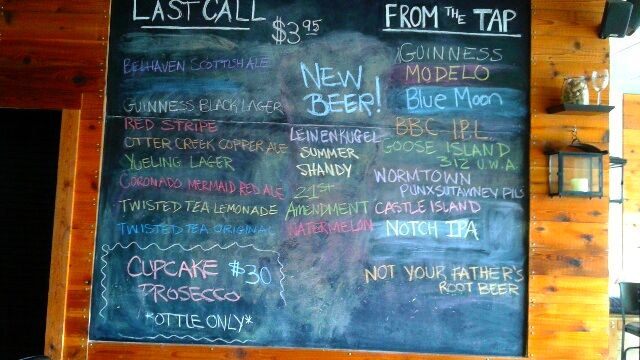 LAST CALL
$3.95
BELHAVEN SCOTTISH ALE
GUINNESS BLACK LAGER
RED STRIPE
OTTER CREEK COPPER ALE
YUELING LAGER
CORONADO MERMAID RED ALE
TWISTED TEA LEMONADE
TWISTED TEA ORIGINAL
CUPCAKE $30
PROSECCO
*OTTLE ONLY*
NEW
BEER!
LEINENKUGEL
SUMMER
SHANDY
21ST
AMENDMENT
WATERMELON
FROM THE TAP
GUINNESS
MODELO
Blue Moon
BBC I.P.L.
GOOSE ISLAND
312 U.W.A.
WORMTOWN
PUNXSUTAWNEY PILS
CASTLE ISLAND
NOTCH IPA
NOT YOUR FATHER'S
ROOT BEER